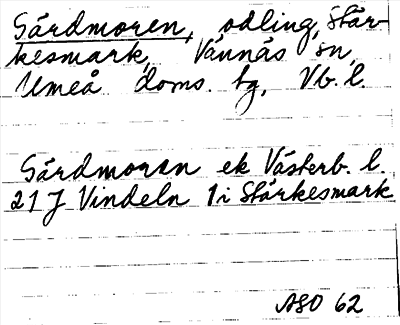 Gärdmoren, odling, Stär-
kesmark, Vännäs sn,
Umeå doms. tg, Vb. l.
Gärdmoran ek Västerb. l.
21 J Vindeln 1 i Stärkesmark
ASO 62